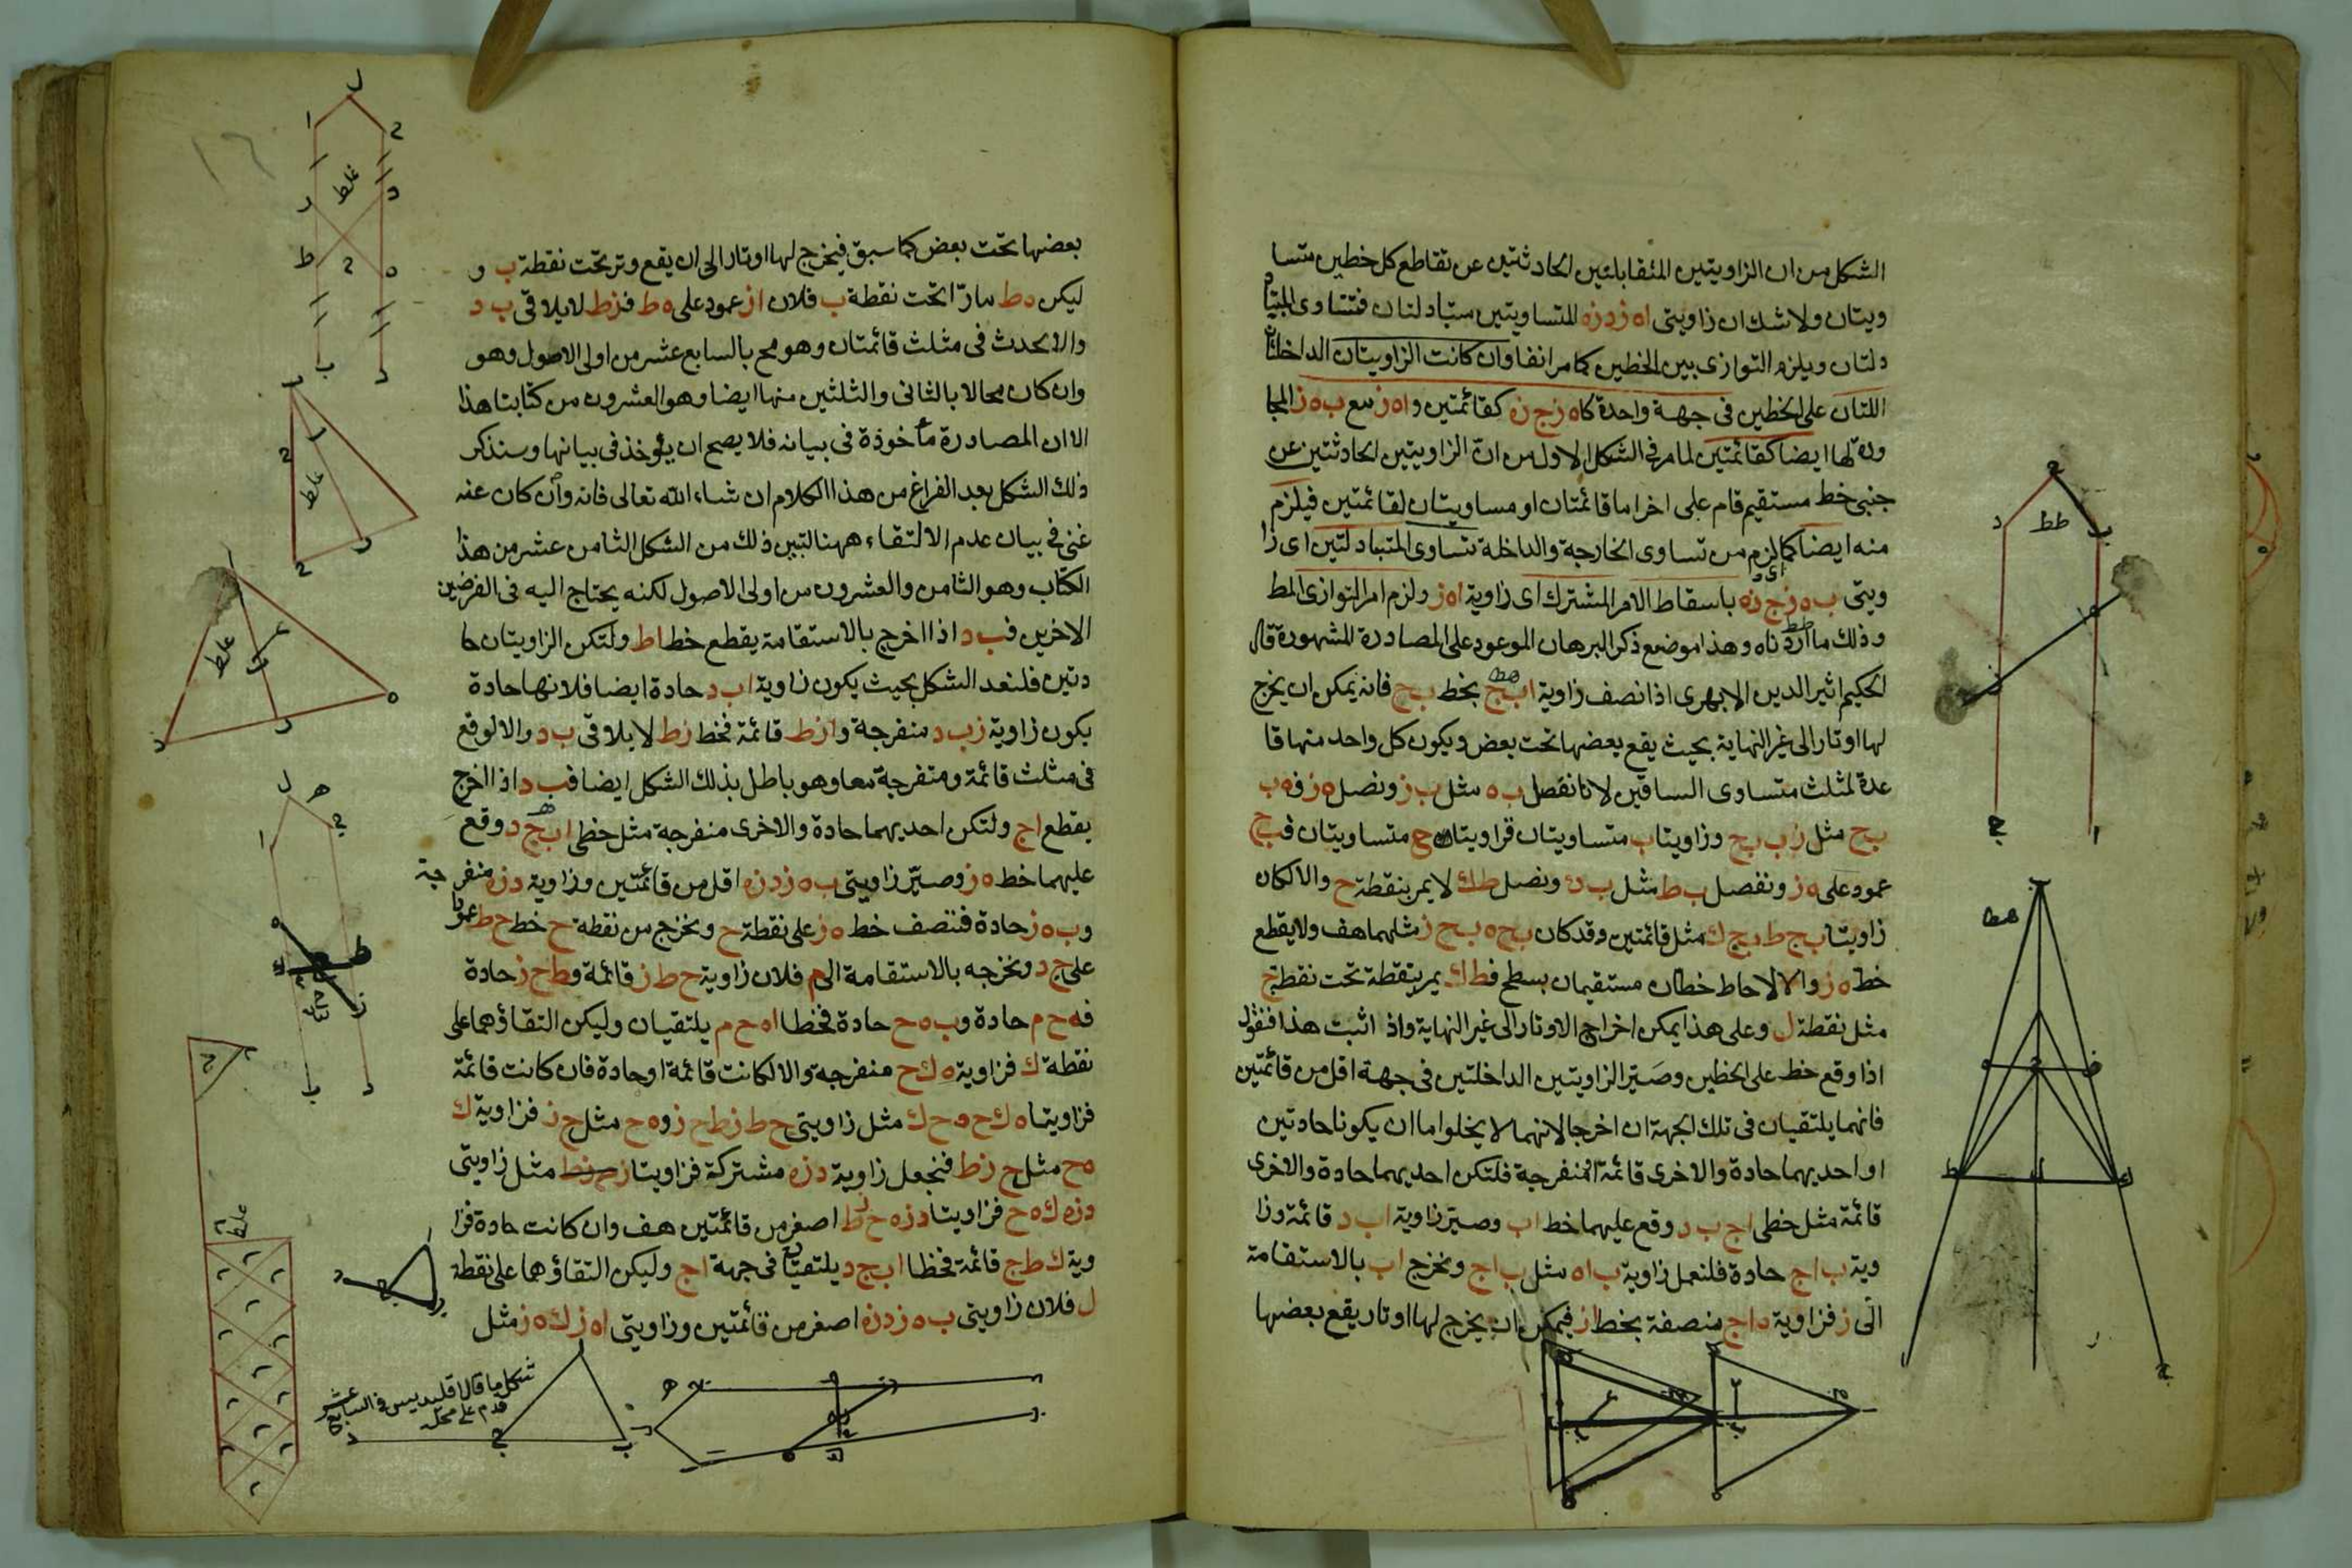 الشكل من ان الزاويتين المتقابلتين الحادثتين عن تقاطع كل خطين متسا
ويتان ولا شك ان زاويتى اه ز د ز ه المتساويتين متبادلتان فتتساوى المتبا
دلتان ويلزم التوازى بين الخطين كما مر انفا وان كانت الزاويتان الداخلتان
اللتان على الخطين فى جهة واحدة كاه ز ج ز ه كقائمتين واه ز مع ب ه ز المجا
ورة لها ايضا كقائمتين لما مر فى الشكل الاول من ان الزاويتين الحادثتين عن
جنبى خط مستقيم قام على اخر اما قائمتان او مساويتان لقائمتين فيلزم
منه ايضا كما لزم من تساوى الخارجة والداخلة تساوى المتبادلتين اى زا
ويتى ب ه ز ج ز ه باسقاط الامر المشترك اى زاوية اه ز ولزم امر التوازى المط
وذلك ما اردناه وهذا موضع ذكر البرهان الموعود على المصادرة المشهورة قال
الحكيم اثير الدين الابهرى اذا نصف زاوية اب ج بخط ب ج فانه يمكن ان يخرج
لها اوتار الى غير النهاية بحيث يقع بعضها تحت بعض ويكون كل واحد منها قا
عدة لمثلث متساوى الساقين لانا نفصل ب ه مثل ب ز ونصل ه ز فه ب
ب ح مثل ز ب ب ح وزاويتا ب متساويتان فزاويتا ح متساويتان فب ح
عمود على ه ز ونفصل ب ط مثل ب ك ونصل ط ك لا يمر بنقطة ح والا لكان
زاويتا ب ح ط ب ح ك مثل قائمتين وقد كان ب ح ه ب ح ز مثلهما هف ولا يقطع
خط ه ز والا لاحاط خطان مستقيمان بسطح فط ك يمر بنقطة تحت نقطة ح
مثل نقطة ل وعلى هذا يمكن اخراج الاوتار الى غير النهاية واذ اثبت هذا فنقول
اذا وقع خط على الخطين وصير الزاويتين الداخلتين فى جهة اقل من قائمتين
فانهما يلتقيان فى تلك الجهة ان اخرجا لانهما لا يخلوا اما ان يكونا حادتين
او احديهما حادة والاخرى قائمة او منفرجة فلتكن احديهما حادة والاخرى
قائمة مثل خطى اج ب د وقع عليهما خط اب وصير زاوية اب د قائمة وزا
وية ب اج حادة فلنعمل زاوية ب اه مثل ب اج ونخرج اب بالاستقامة
الى ز فزاوية ه اج منصفة بخط از فيمكن ان يخرج لها اوتار يقع بعضها
بعضها تحت بعض كما سبق فيخرج لها اوتار الى ان يقع وتر تحت نقطة ب و
ليكن ه ط مارّا تحت نقطة ب فلان از عمود على ه ط فز ط لا يلاقى ب د
والا يحدث فى مثلث قائمتان وهو مح بالسابع عشر من اولى الاصول وهو
وان كان محالا بالثانى والثلثين منها ايضا وهو العشرون من كتابنا هذا
الا ان المصادرة مأخوذة فى بيانه فلا يصح ان يؤخذ فى بيانها وسنذكر
ذلك الشكل بعد الفراغ من هذا الكلام ان شاء الله تعالى فانه وان كان عنه
غنى فى بيان عدم الالتقاء ههنا لتبين ذلك من الشكل الثامن عشر من هذا
الكتاب وهو الثامن والعشرون من اولى الاصول لكنه يحتاج اليه فى الفرضين
الاخرين فب د اذا اخرج بالاستقامة يقطع خط اط ولتكن الزاويتان حا
دتين فلنعد الشكل بحيث يكون زاوية اب د حادة ايضا فلانها حادة
يكون زاوية ز ب د منفرجة واز ط قائمة فخط ز ط لا يلاقى ب د والا لوقع
فى مثلث قائمة ومنفرجة معا وهو باطل بذلك الشكل ايضا فب د اذا اخرج
يقطع اج ولتكن احديهما حادة والاخرى منفرجة مثل خطى اب ج د وقع
عليهما خط ه ز وصيّر زاويتى ب ه ز د ز ه اقل من قائمتين وزاوية د ز ه منفرجة
وب ه ز حادة فننصف خط ه ز على نقطة ح ونخرج من نقطة ح خط ح ط عمودا
على ج د ونخرجه بالاستقامة الى م فلان زاوية ح ط ز قائمة وط ح ز حادة
فه ح م حادة وب ه ح حادة فخطا اه ح م يلتقيان وليكن التقاؤهما على
نقطة ك فزاوية ه ك ح منفرجة والا لكانت قائمة او حادة فان كانت قائمة
فزاويتا ه ك ح ه ح ك مثل زاويتى ح ط ز ط ح ز وه ح مثل ح ز فزاوية ك
ه ح مثل ح ز ط فنجعل زاوية د ز ه مشتركة فزاويتا مثل زاويتى
د ز ه ك ه ح فزاويتا د ز ه ح ز ط اصغر من قائمتين هف وان كانت حادة فزا
وية ك ط ج قائمة فخطا اب ج د يلتقيان فى جهة اج وليكن التقاؤهما على نقطة
ل فلان زاويتى ب ه ز د ز ه اصغر من قائمتين وزاويتى اه ز ك ه ز مثل
غلط
غلط
غلط
غلط
شكل ما قال اقليدس فى السابع عشر
قدم على محله